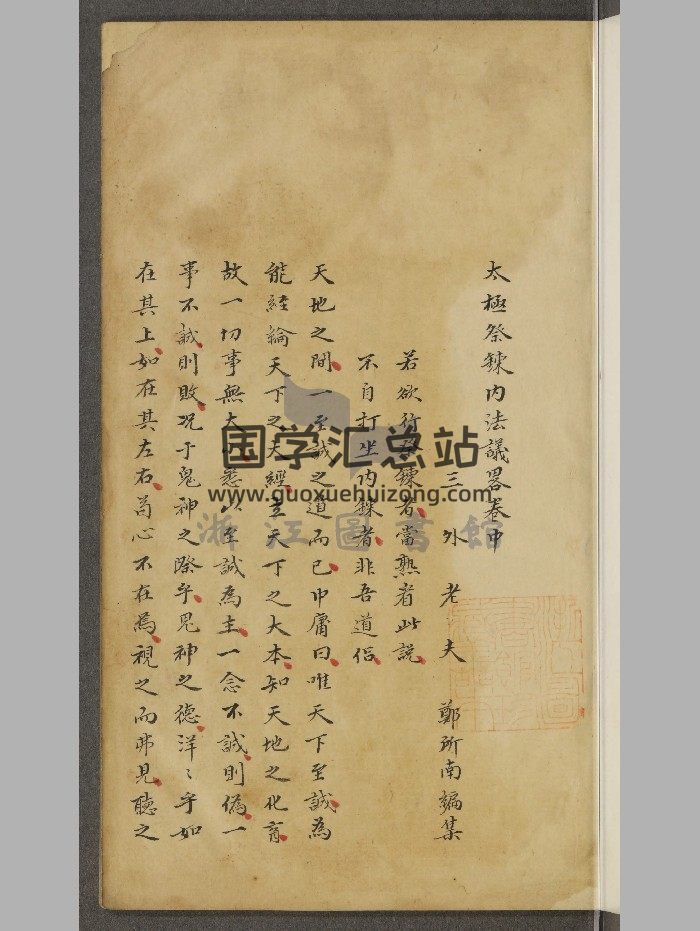 太極祭鍊内法議畧卷中
三外老夫 鄭所南編集
若欲行祭鍊者當熟看此說
不自打坐内鍊者非吾道侶
天地之間一至誠之道而已中庸曰唯天下至誠為
能經綸天下之大經立天下之大本知天地之化育
故一切事無大小悉以至誠為主一念不誠則偽一
事不誠則敗況于鬼神之際乎鬼神之德洋〻乎如
在其上如在其左右苟心不在焉視之而弗見聽之
国学汇总站
www.guoxuehuizong.com
浙江圖書館